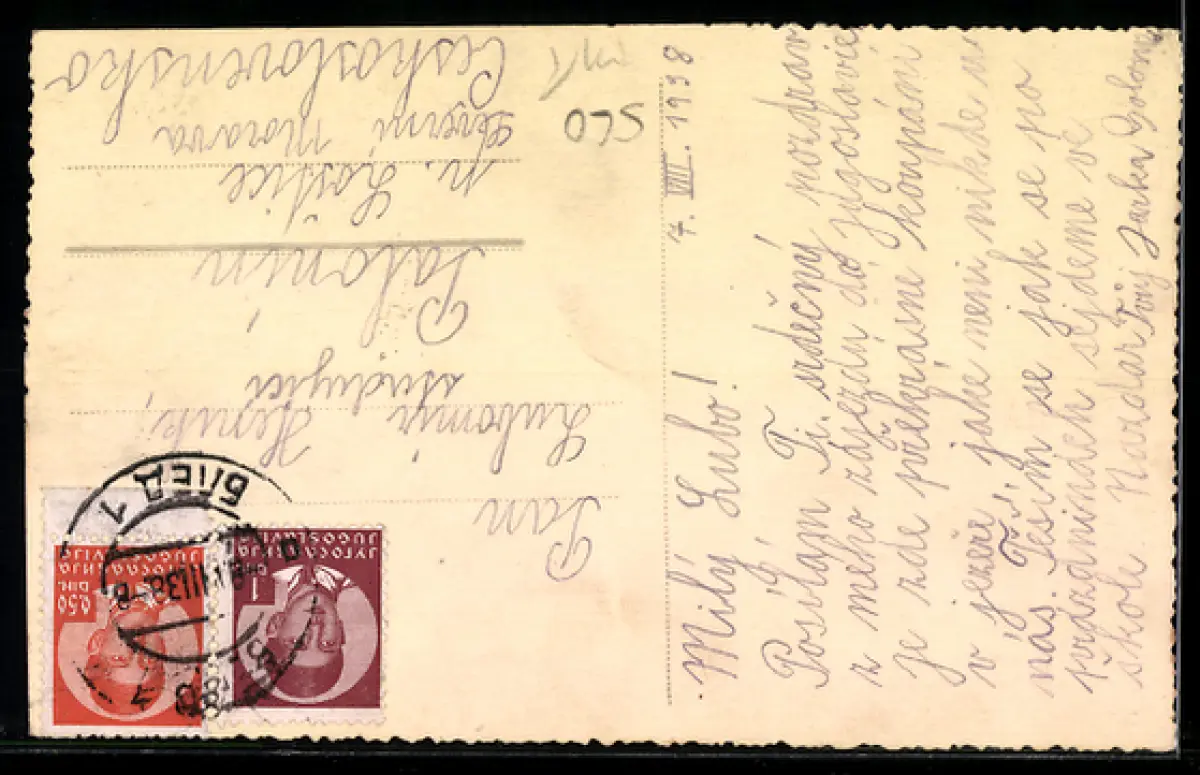 7. VIII. 1938
Milý Lubo!
Posílám Ti srdečný pozdrav
z mého zájezdu do Jugoslavie,
je zde překrásné koupání
v jezeře, jaké není nikde u
nás. Těším se jak se po
prázdninách sejdeme ve
škole. Nazdar Tvůj Jarka
Pan
Lubomír
studující
n. Loštice
Severní Morava
Československo
SLO
БЛЕД 1
BLED 1
VIII 38
ЈУГОСЛАВИЈА
JUGOSLAVIJA
1
ЈУГОСЛАВИЈА
JUGOSLAVIJA
0,50
DIN.